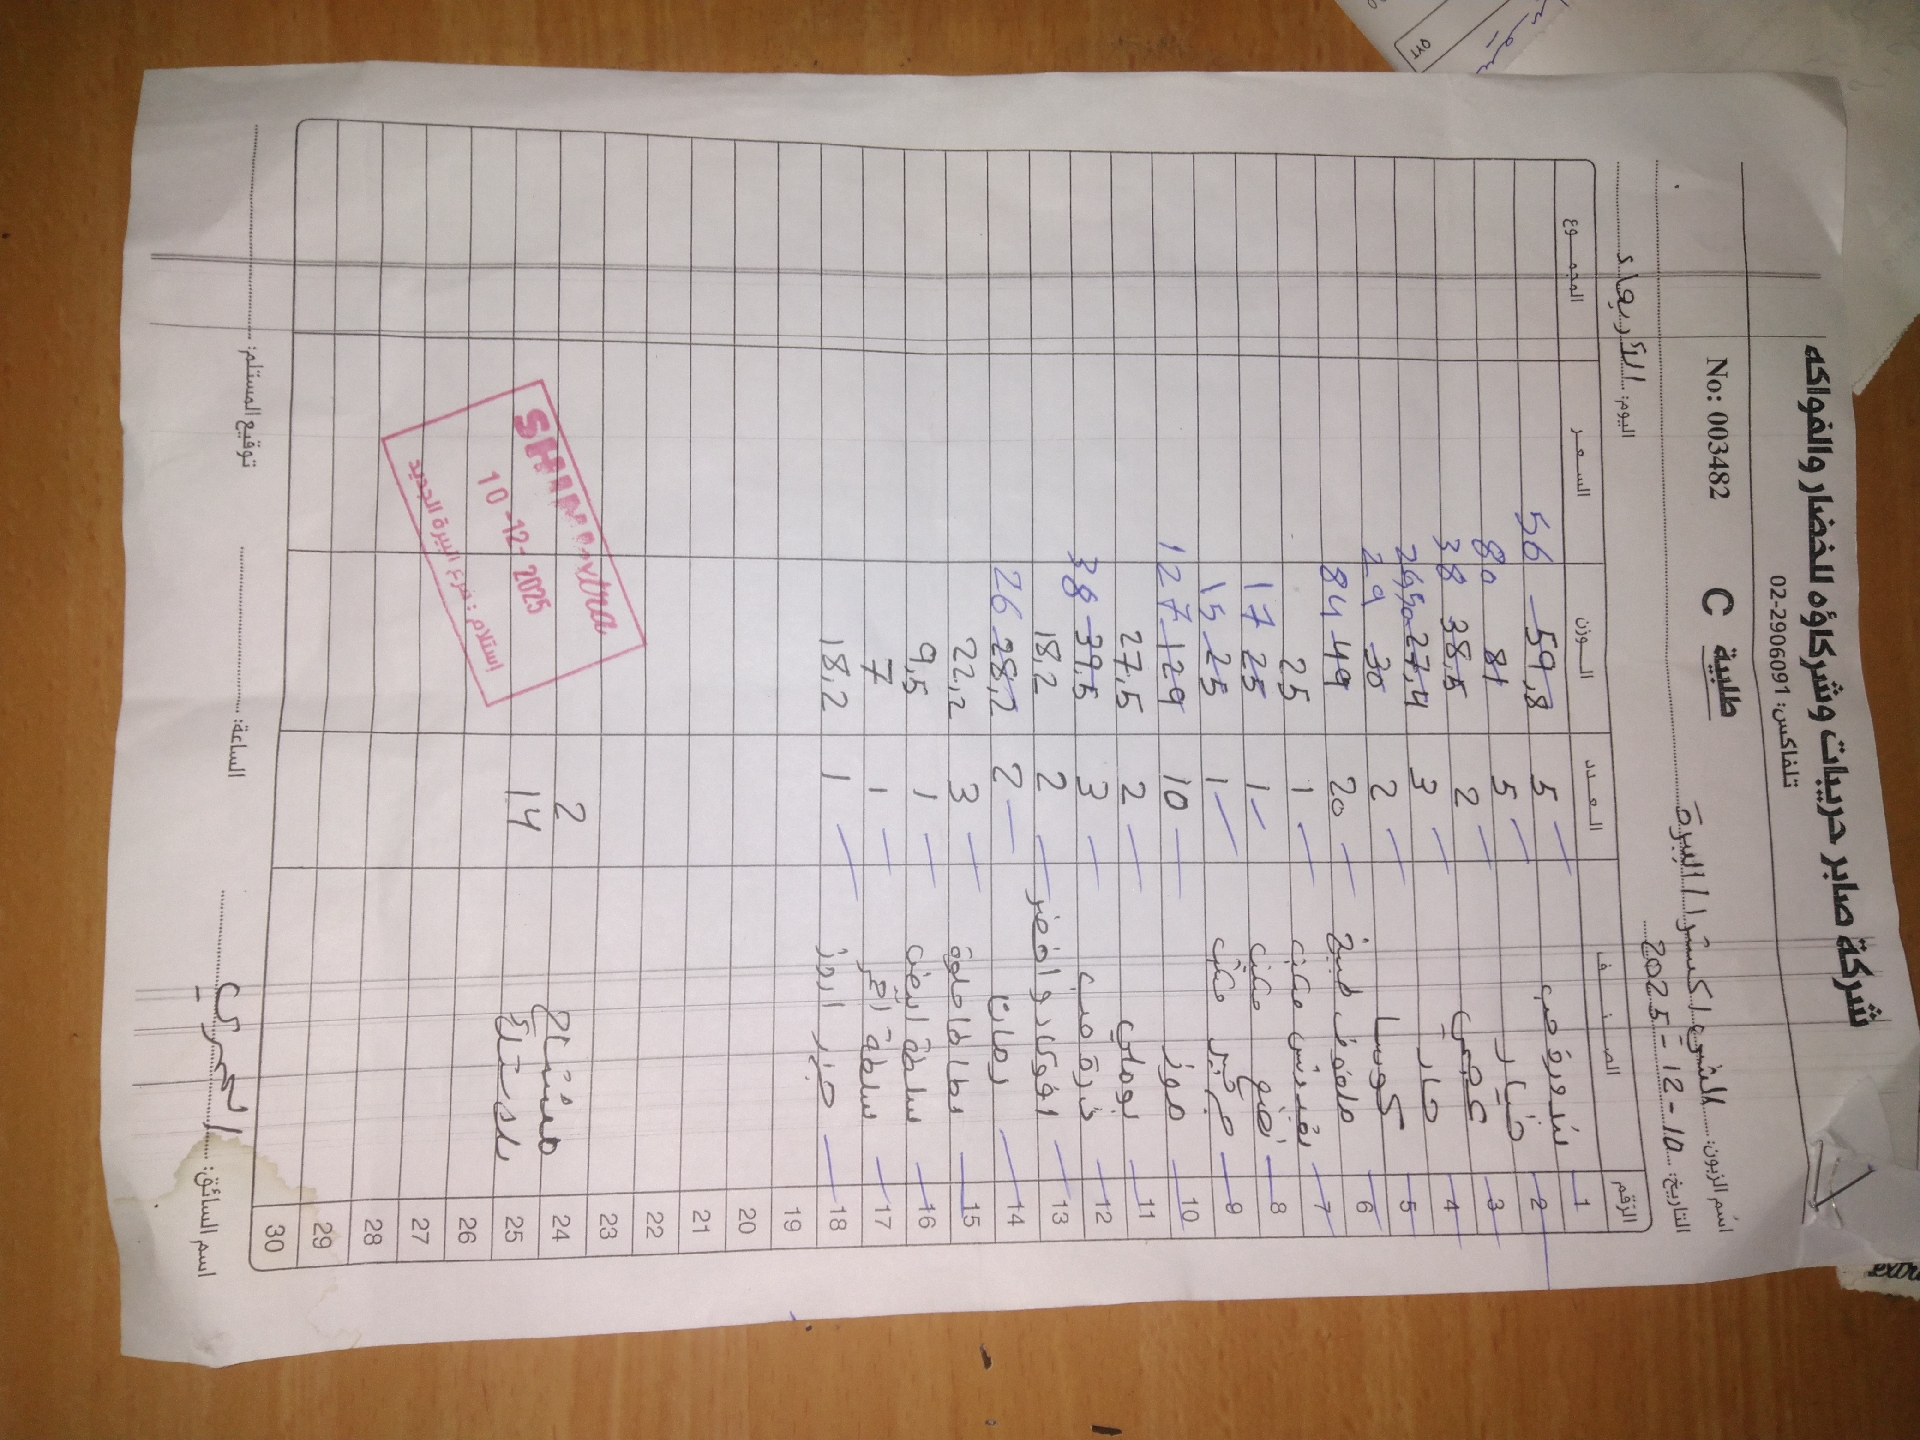 شركة صابر حربيات وشركاؤه للخضار والفواكه
تلفاكس: 02-2906091
طلبية C No: 003482
اسم الزبون: الشني اكسترا البيرة
التاريخ: 10-12-2025 اليوم: الأربعاء
الرقم الصنف العدد الوزن السعر المجموع
1 بندورة 5 59,8 56
2 خيار 5 81 80
3 عجمي 2 38,5 38
4 حار 3 27,4 26,50
5 كوسا 2 30 29
6 ملفوف 20 49 84
7 بقدونس 1 25
8 1 25 17
9 1 25 15
10 موز 10 129 127
11 بوملي 2 27,5
12 ذرة 3 39,5 38
13 افوكادو اخضر 2 18,2
14 رمان 2 28,2 26
15 بطاطا حلوة 3 22,2
16 سلطة ابيض 1 9,5
17 سلطة احمر 1 7
18 جزر 1 18,2
19
20
21
22
23
24 مشتاح 2
25 بلاستك 14
26
27
28
29
30
SHINI extra
10-12-2025
استلام: فرع البيرة الجديد
اسم السائق: العمري الساعة: توقيع المستلم: